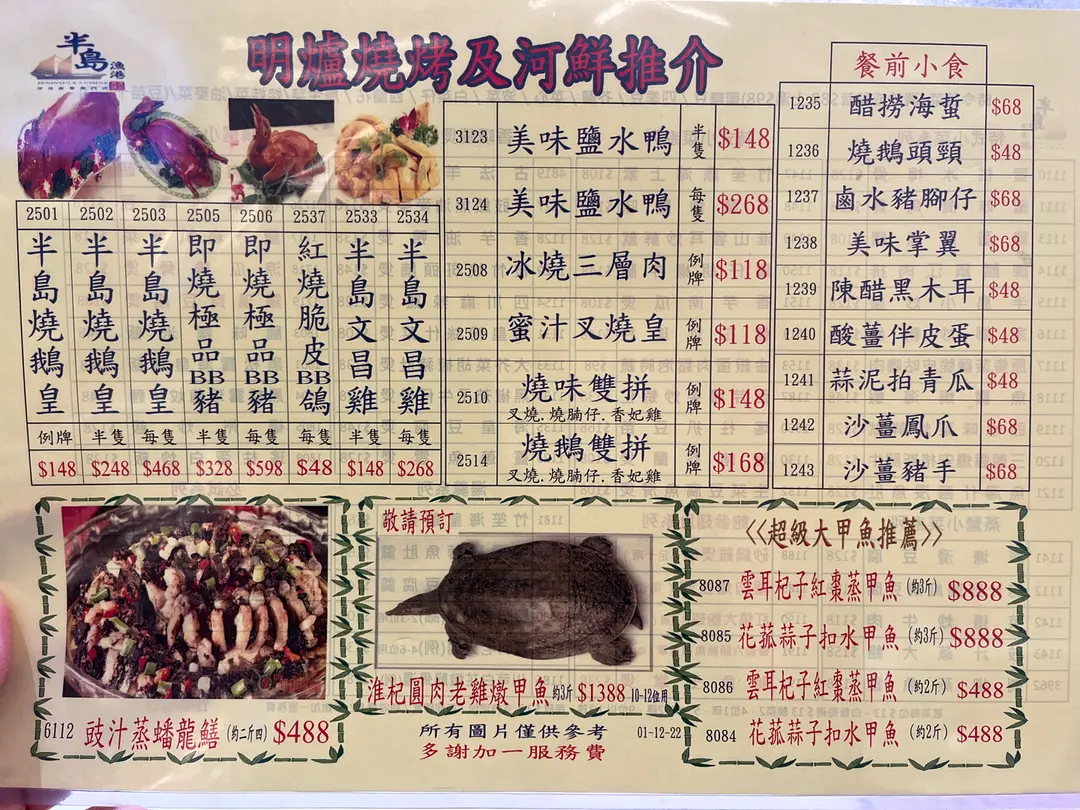 半島漁港
PENINSULA CUISINE
明爐燒烤及河鮮推介
2501 2502 2503 2505 2506 2537 2533 2534
半島燒鵝皇 例牌 $148
半島燒鵝皇 半隻 $248
半島燒鵝皇 每隻 $468
即燒極品BB豬 半隻 $328
即燒極品BB豬 每隻 $598
紅燒脆皮BB鴿 每隻 $48
半島文昌雞 半隻 $148
半島文昌雞 每隻 $268
3123 美味鹽水鴨 半隻 $148
3124 美味鹽水鴨 每隻 $268
2508 冰燒三層肉 例牌 $118
2509 蜜汁叉燒皇 例牌 $118
2510 燒味雙拼 例牌 $148
叉燒.燒腩仔.香妃雞
2514 燒鵝雙拼 例牌 $168
叉燒.燒腩仔.香妃雞
餐前小食
1235 醋撈海蜇 $68
1236 燒鵝頭頸 $48
1237 鹵水豬腳仔 $68
1238 美味掌翼 $68
1239 陳醋黑木耳 $48
1240 酸薑伴皮蛋 $48
1241 蒜泥拍青瓜 $48
1242 沙薑鳳爪 $68
1243 沙薑豬手 $68
6112 豉汁蒸蟠龍鱔 (約二斤四) $488
敬請預訂
淮杞圓肉老雞燉甲魚 約3斤 $1388 10-12位用
<<超級大甲魚推薦>>
8087 雲耳杞子紅棗蒸甲魚 (約3斤) $888
8085 花菰蒜子扣水甲魚 (約3斤) $888
8086 雲耳杞子紅棗蒸甲魚 (約2斤) $488
8084 花菰蒜子扣水甲魚 (約2斤) $488
所有圖片僅供參考 01-12-22
多謝加一服務費